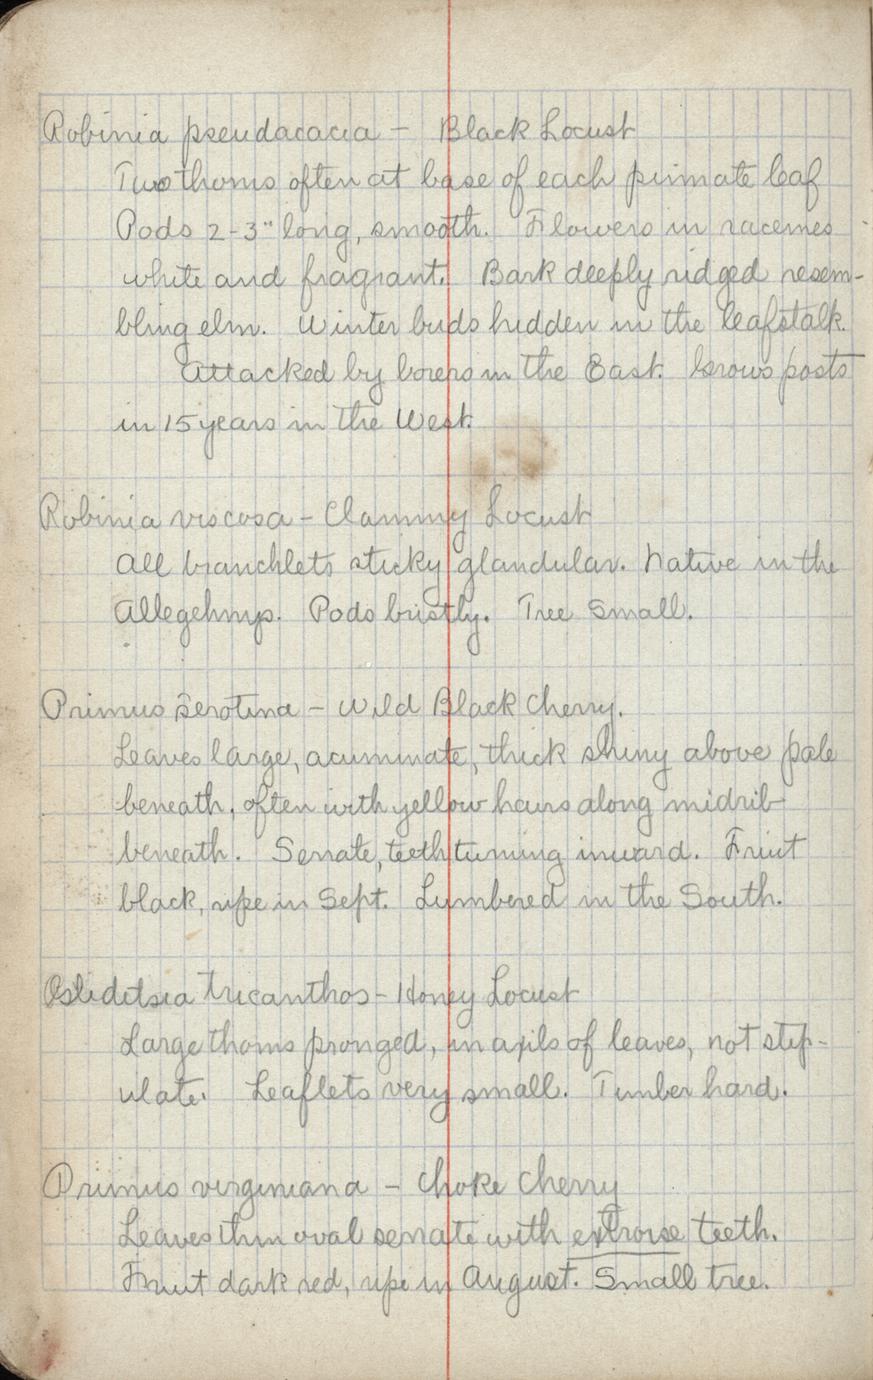 Robinia pseudacacia – Black Locust
Two thorns often at base of each pinnate leaf
Pods 2-3" long, smooth. Flowers in racemes
white and fragrant. Bark deeply ridged resem-
bling elm. Winter buds hidden in the leafstalk.
Attacked by borers in the East. Grows posts
in 15 years in the West.
Robinia viscosa – Clammy Locust
All branchlets sticky glandular. Native in the
Allegehnys. Pods bristly. Tree small.
Prunus serotina – Wild Black Cherry.
Leaves large, acuminate, thick shiny above pale
beneath, often with yellow hairs along midrib
beneath. Serrate, teeth turning inward. Fruit
black, ripe in Sept. Lumbered in the South.
Gleditsia tricanthos – Honey Locust
Large thorns pronged, in axils of leaves, not stip-
ulate. Leaflets very small. Timber hard.
Prunus virginiana – Choke Cherry
Leaves thin oval serrate with extrorse teeth.
Fruit dark red, ripe in August. Small tree.